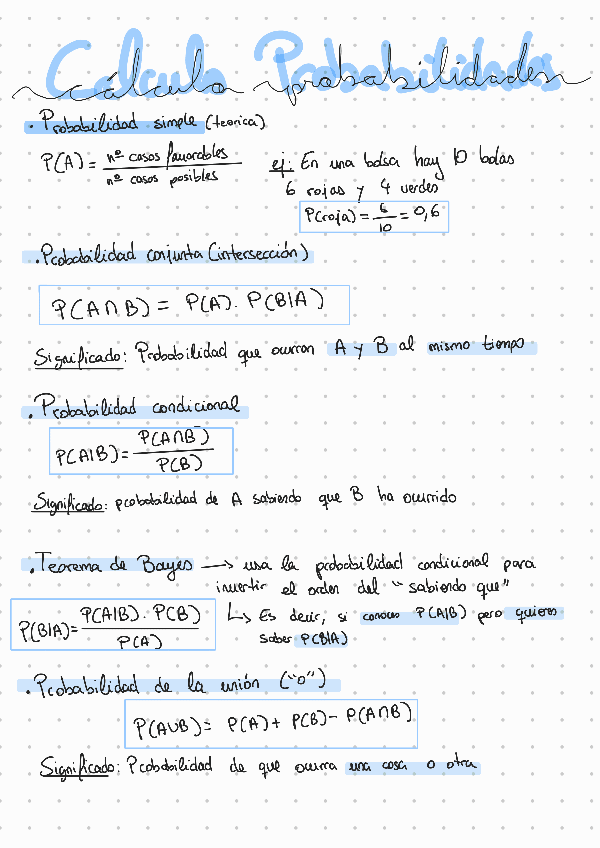 Cálculo Probabilidades
• Probabilidad simple (teorica)
P(A) = nº casos favorables / nº casos posibles
ej: En una bolsa hay 10 bolas
6 rojas y 4 verdes
P(roja) = 6/10 = 0,6
• Probabilidad conjunta (intersección)
P(A∩B) = P(A) · P(B|A)
Significado: Probabilidad que ocurran A y B al mismo tiempo
• Probabilidad condicional
P(A|B) = P(A∩B) / P(B)
Significado: probabilidad de A sabiendo que B ha ocurrido
• Teorema de Bayes → usa la probabilidad condicional para
invertir el orden del "sabiendo que"
P(B|A) = P(A|B) · P(B) / P(A)
↳ Es decir, si conoces P(A|B) pero quieres
saber P(B|A)
• Probabilidad de la unión ("o")
P(A∪B) = P(A) + P(B) - P(A∩B)
Significado: Probabilidad de que ocurra una cosa o otra